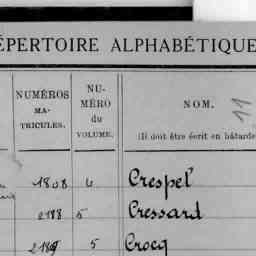 RÉPERTOIRE ALPHABÉTIQUE
NUMÉROS MA- TRICULES. NU- MÉRO du VOLUME. NOM. (Il doit être écrit en bâtarde
11
1808 6 Crespel
2188 5 Cressard
2189 5 Crocq